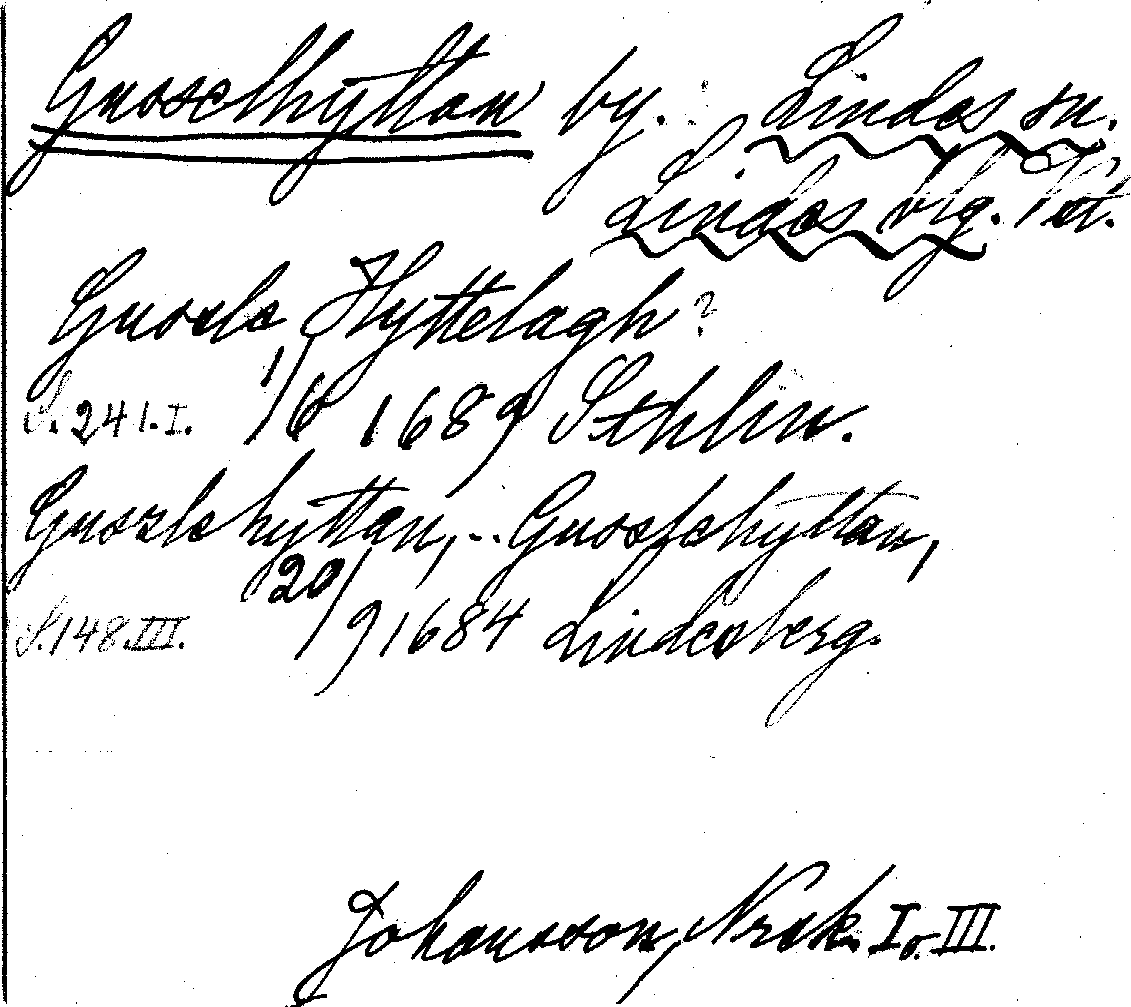 Gusselhyttan by. Lindes sn.
Lindes brg. Vstl.
Gussels Hyttelagh?
S. 241. I. 1/6 1689 Sthlm.
Gussle hyttan, .. Gusselhyttan,
S. 148. III. 20/9 1684 Lindesberg.
Johansson, Norak. I o. III.